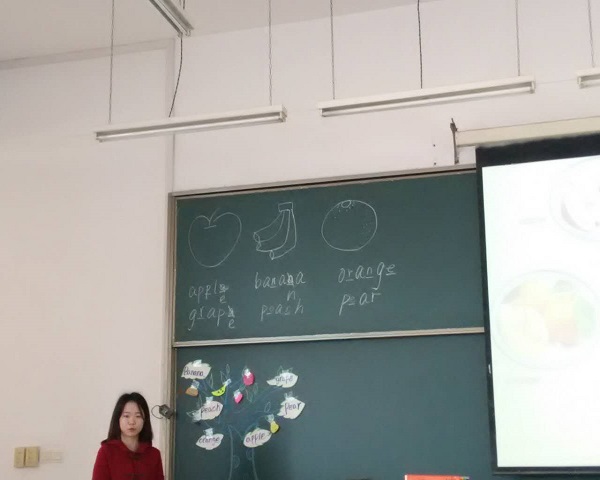 apple banana orange
grape peach pear
banana
grape
peach
pear
orange
apple